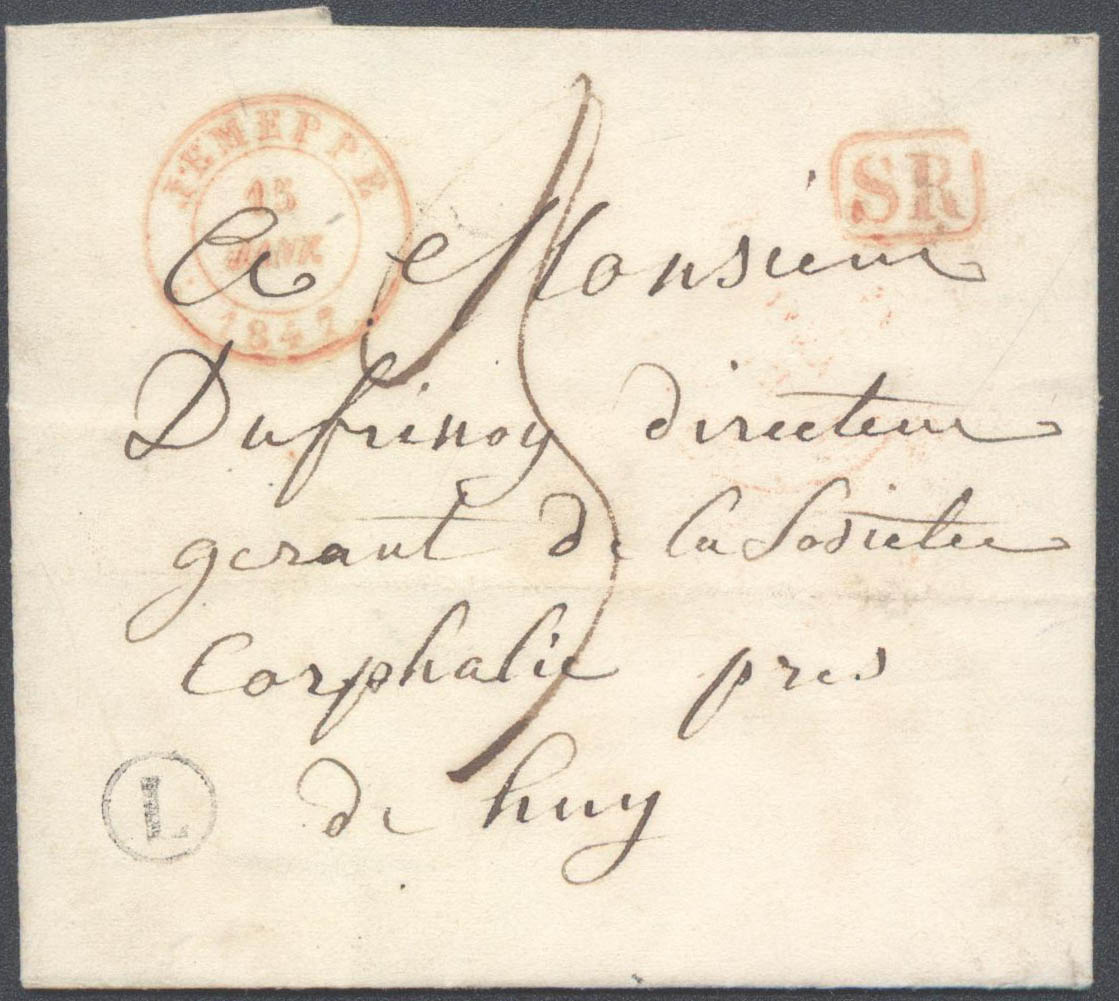 JEMEPPE
15
JANV
1847
SR
3
A Monsieur
Dufrinoy directeur
gerant de la Societee
Corphalie pres
de huy
L